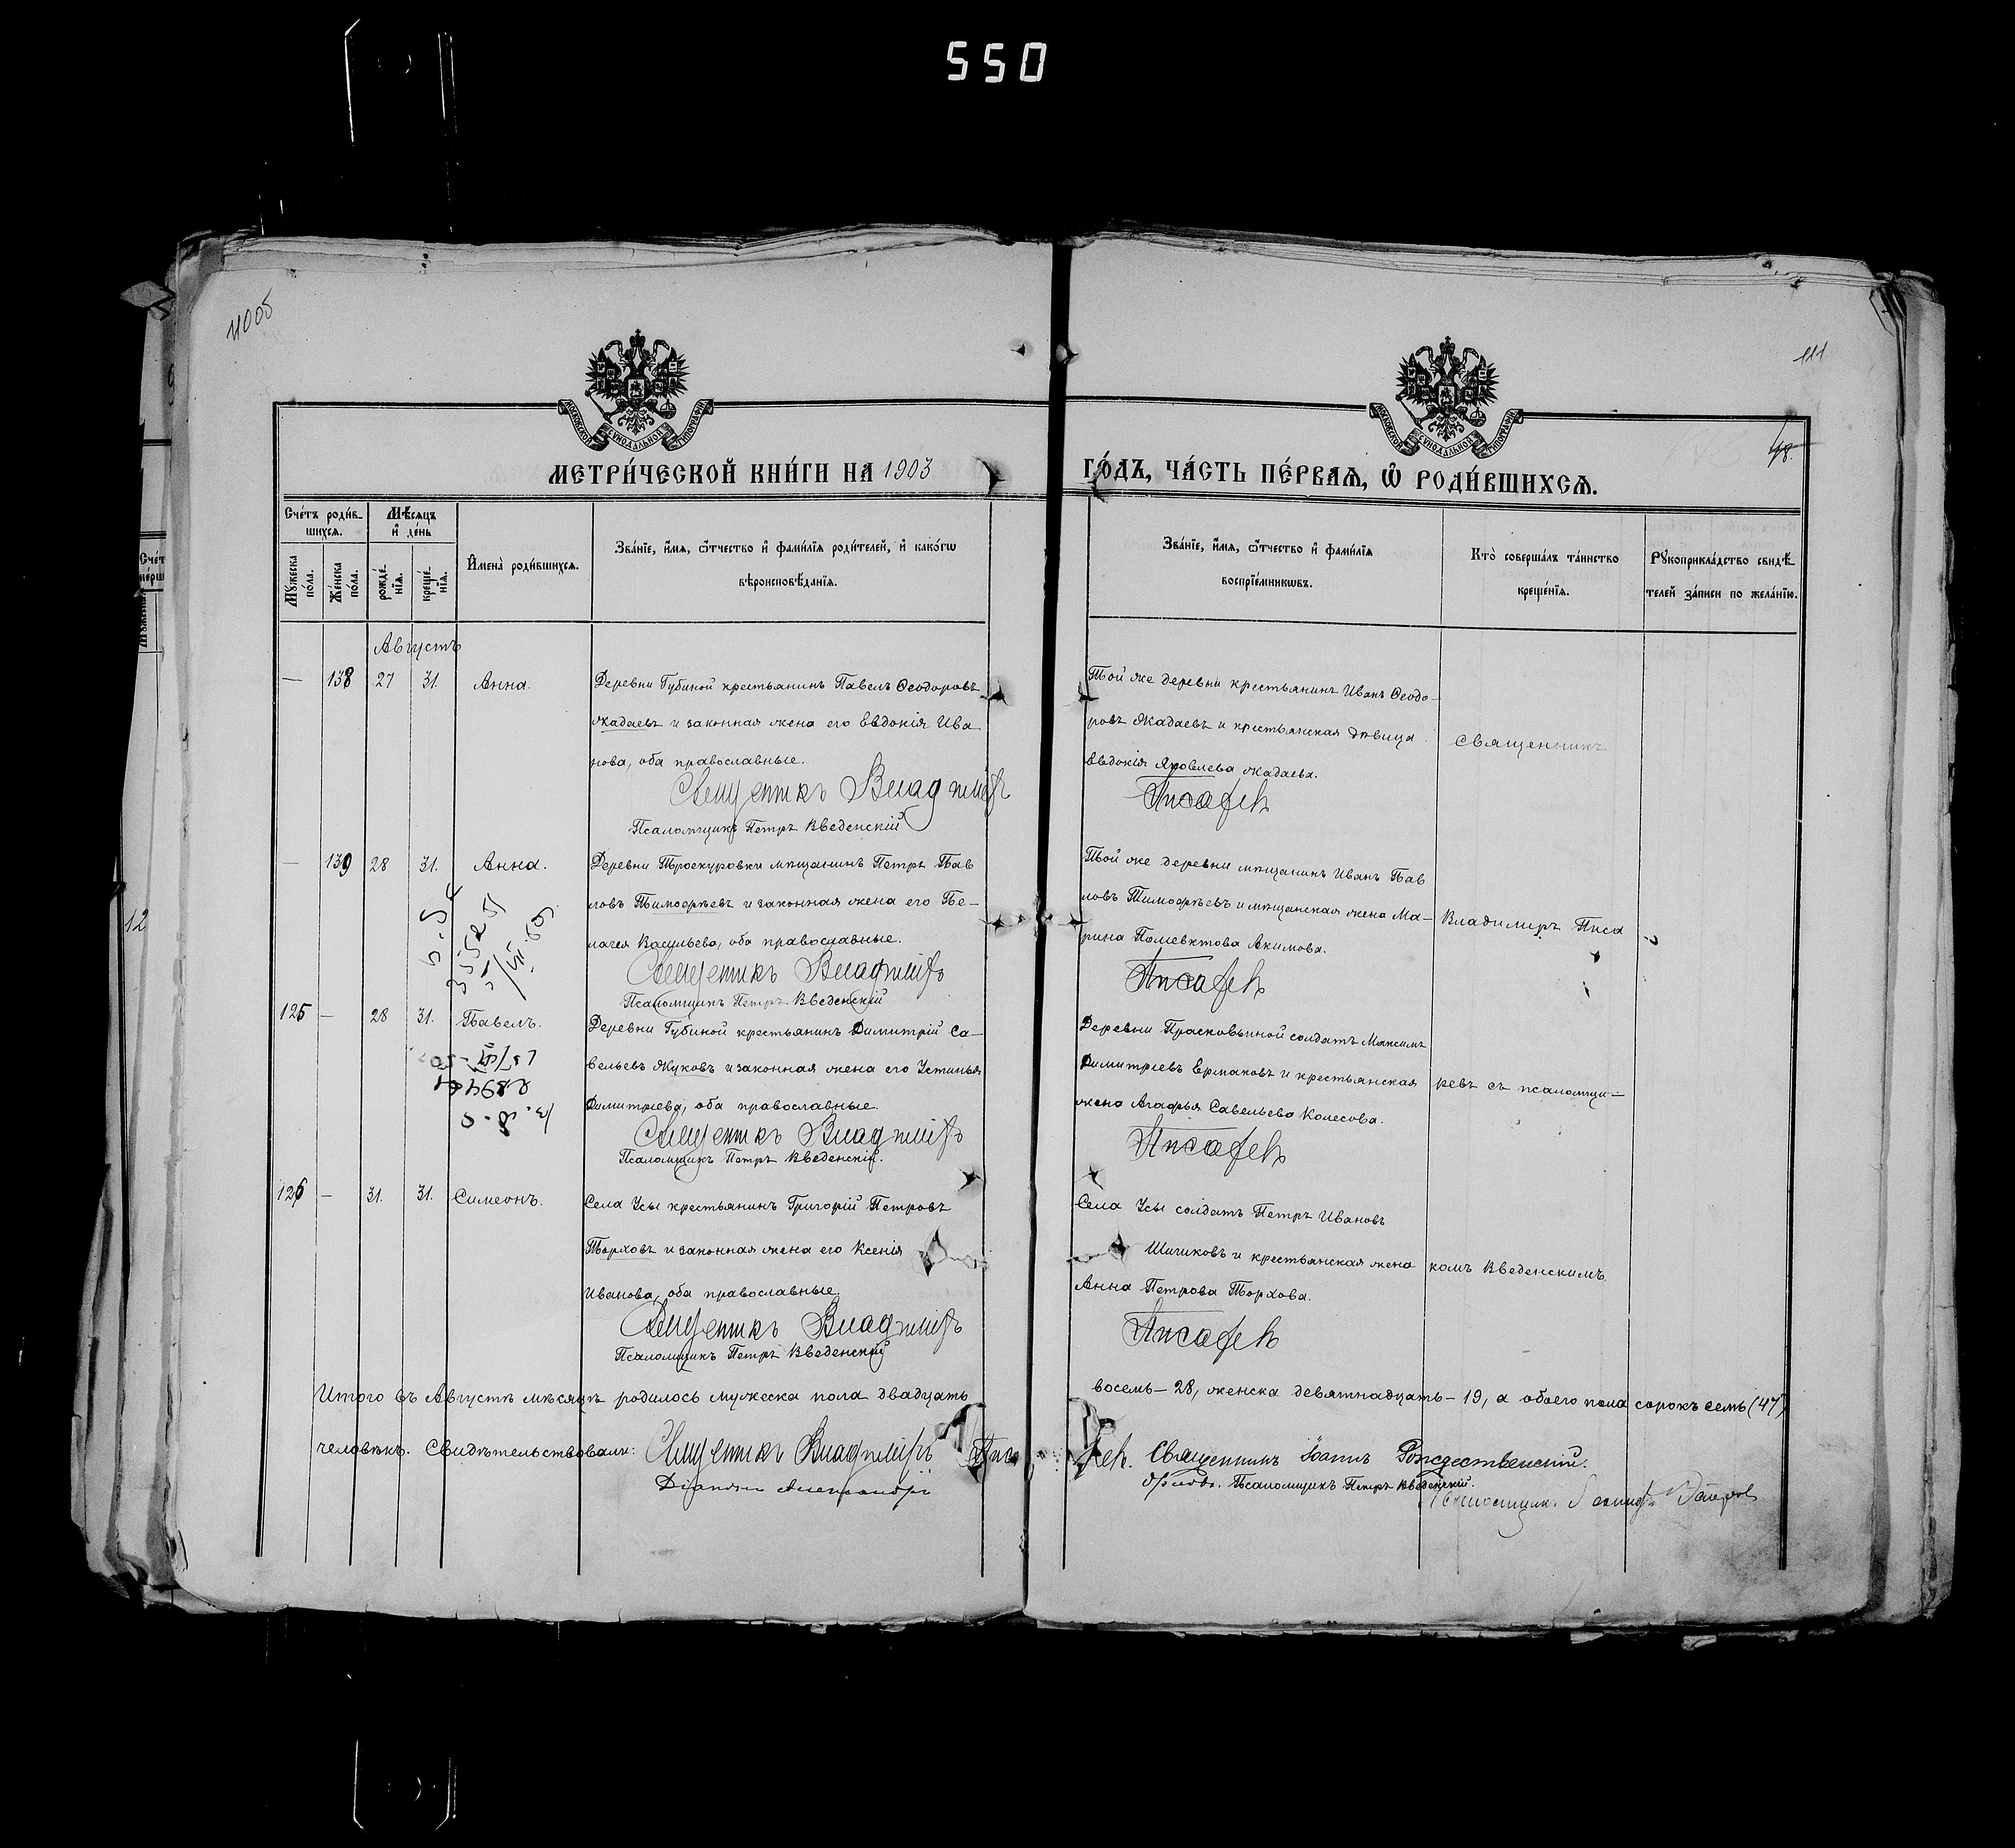 550
4005
111
48.
МОСКОВСКОЙ СѴНОДАЛЬНОЙ ТИПОГРАФІИ
МОСКОВСКОЙ СѴНОДАЛЬНОЙ ТИПОГРАФІИ
МЕТРИ́ЧЕСКОЙ КНИ́ГИ НА 1903
ГО́ДЪ, ЧА́СТЬ ПЕ́РВАѦ, Ѽ РОДИ́ВШИХСѦ.
Сче́тъ роди́в-
шихсѧ.
Мѣ́сѧцъ
и҆ де́нь
Мꙋ́жеска
по́ла.
Же́нска
по́ла.
рожде́-
нїѧ.
креще́-
нїѧ.
И҆мена̀ роди́вшихсѧ.
Зва́нїе, и҆́мѧ, ѻ҆́тчество и҆ фами́лїѧ роди́телей, и҆ како́гѡ
вѣроисповѣ́данїѧ.
Зва́нїе, и҆́мѧ, ѻ҆́тчество и҆ фами́лїѧ
воспрїе́мникѡвъ.
Кто̀ соверша́лъ та́инство
креще́нїѧ.
Рꙋкоприкла́дство свидѣ́-
телей за́писи по жела́нїю.
Августъ
— 138 27 31. Анна.
Деревни Губиной крестьянинъ Павелъ Ѳеодоровъ
Жадаевъ и законная жена его Евдокія Ива
нова, оба православные.
Священникъ Владиміръ
Псаломщикъ Петръ Введенскій
Той же деревни крестьянинъ Иванъ Ѳеодо-
ровъ Жадаевъ и крестьянская дѣвица
Евдокія Яковлева Жадаева.
Писаревъ
Священникъ
— 139 28 31. Анна.
Деревни Троекуровки мѣщанинъ Петръ Пав
ловъ Тимоѳеевъ и законная жена его Пе-
лагея Васильева, оба православные.
Священникъ Владиміръ
Псаломщикъ Петръ Введенскій
Той же деревни мѣщанинъ Иванъ Пав
ловъ Тимоѳеевъ и мѣщанская жена Ма-
рина Полиевктова Акимова.
Писаревъ
Владимиръ Писа
125 — 28 31. Павелъ.
Деревни Губиной крестьянинъ Димитрій Са-
вельевъ Жуковъ и законная жена его Устинья
Димитриева, оба православные.
Священникъ Владиміръ
Псаломщикъ Петръ Введенскій.
Деревни Прасковьиной солдатъ Максимъ
Димитриевъ Ермаковъ и крестьянская
жена Агафья Савельева Колесова.
Писаревъ
ревъ съ псаломщи-
126 — 31. 31. Симеонъ.
Села Усы крестьянинъ Григорій Петровъ
Торховъ и законная жена его Ксенія
Иванова, оба православные.
Священникъ Владиміръ
Псаломщикъ Петръ Введенскій
Села Усы солдатъ Петръ Ивановъ
Шишковъ и крестьянская жена
Анна Петрова Торхова.
Писаревъ
комъ Введенскимъ.
Итого въ Августѣ мѣсяцѣ родилось мужеска пола двадцать
восемь — 28, женска девятнадцать — 19, а обоего пола сорокъ семь (47)
человѣкъ. Свидѣтельствовали: Священникъ Владиміръ Писаревъ. Священникъ Іоаннъ Рождественскій.
Псаломщикъ Петръ Введенскій.
12